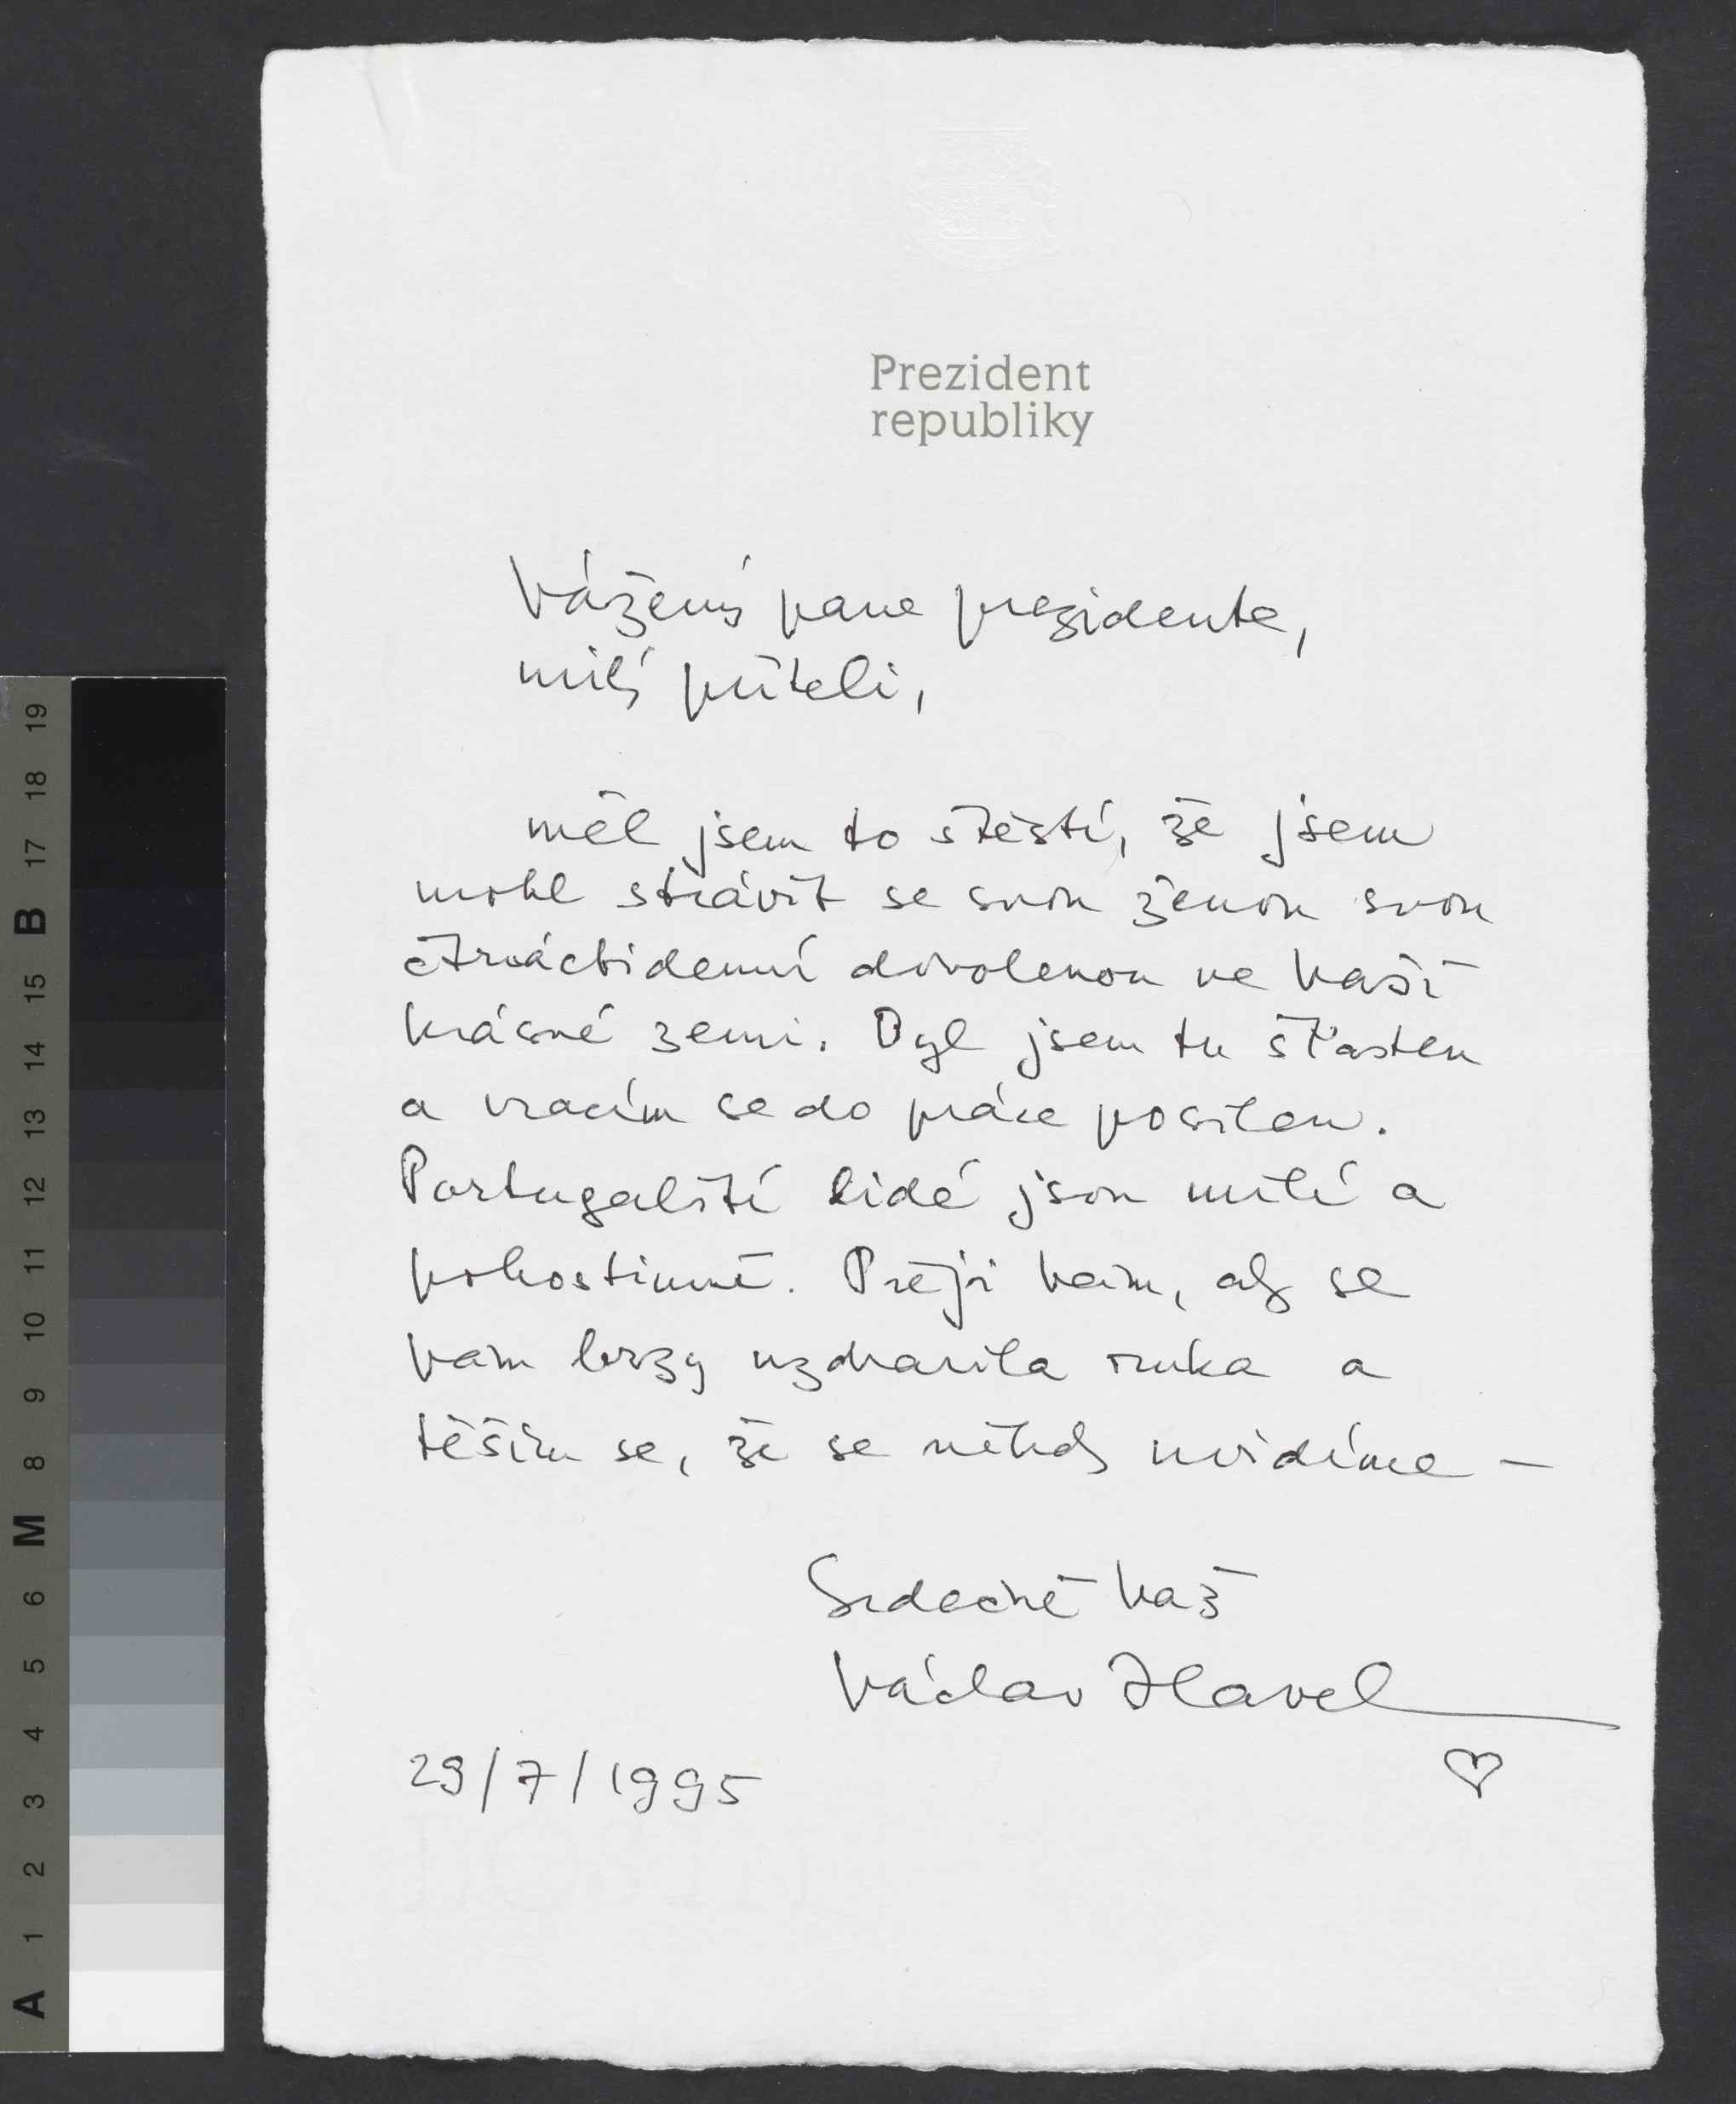 Prezident
republiky
Vážený pane prezidente,
milý příteli,
měl jsem to štěstí, že jsem
mohl strávit se svou ženou svou
čtrnáctidenní dovolenou ve Vaší
krásné zemi. Byl jsem tu šťasten
a vracím se do práce posílen.
Portugalští lidé jsou milí a
pohostinní. Přeji Vám, aby se
Vám brzy uzdravila ruka a
těším se, že se někdy uvidíme –
Srdečně Váš
Václav Havel
29/7/1995
19
18
17
B
15
14
13
12
11
10
9
8
M
6
5
4
3
2
1
A